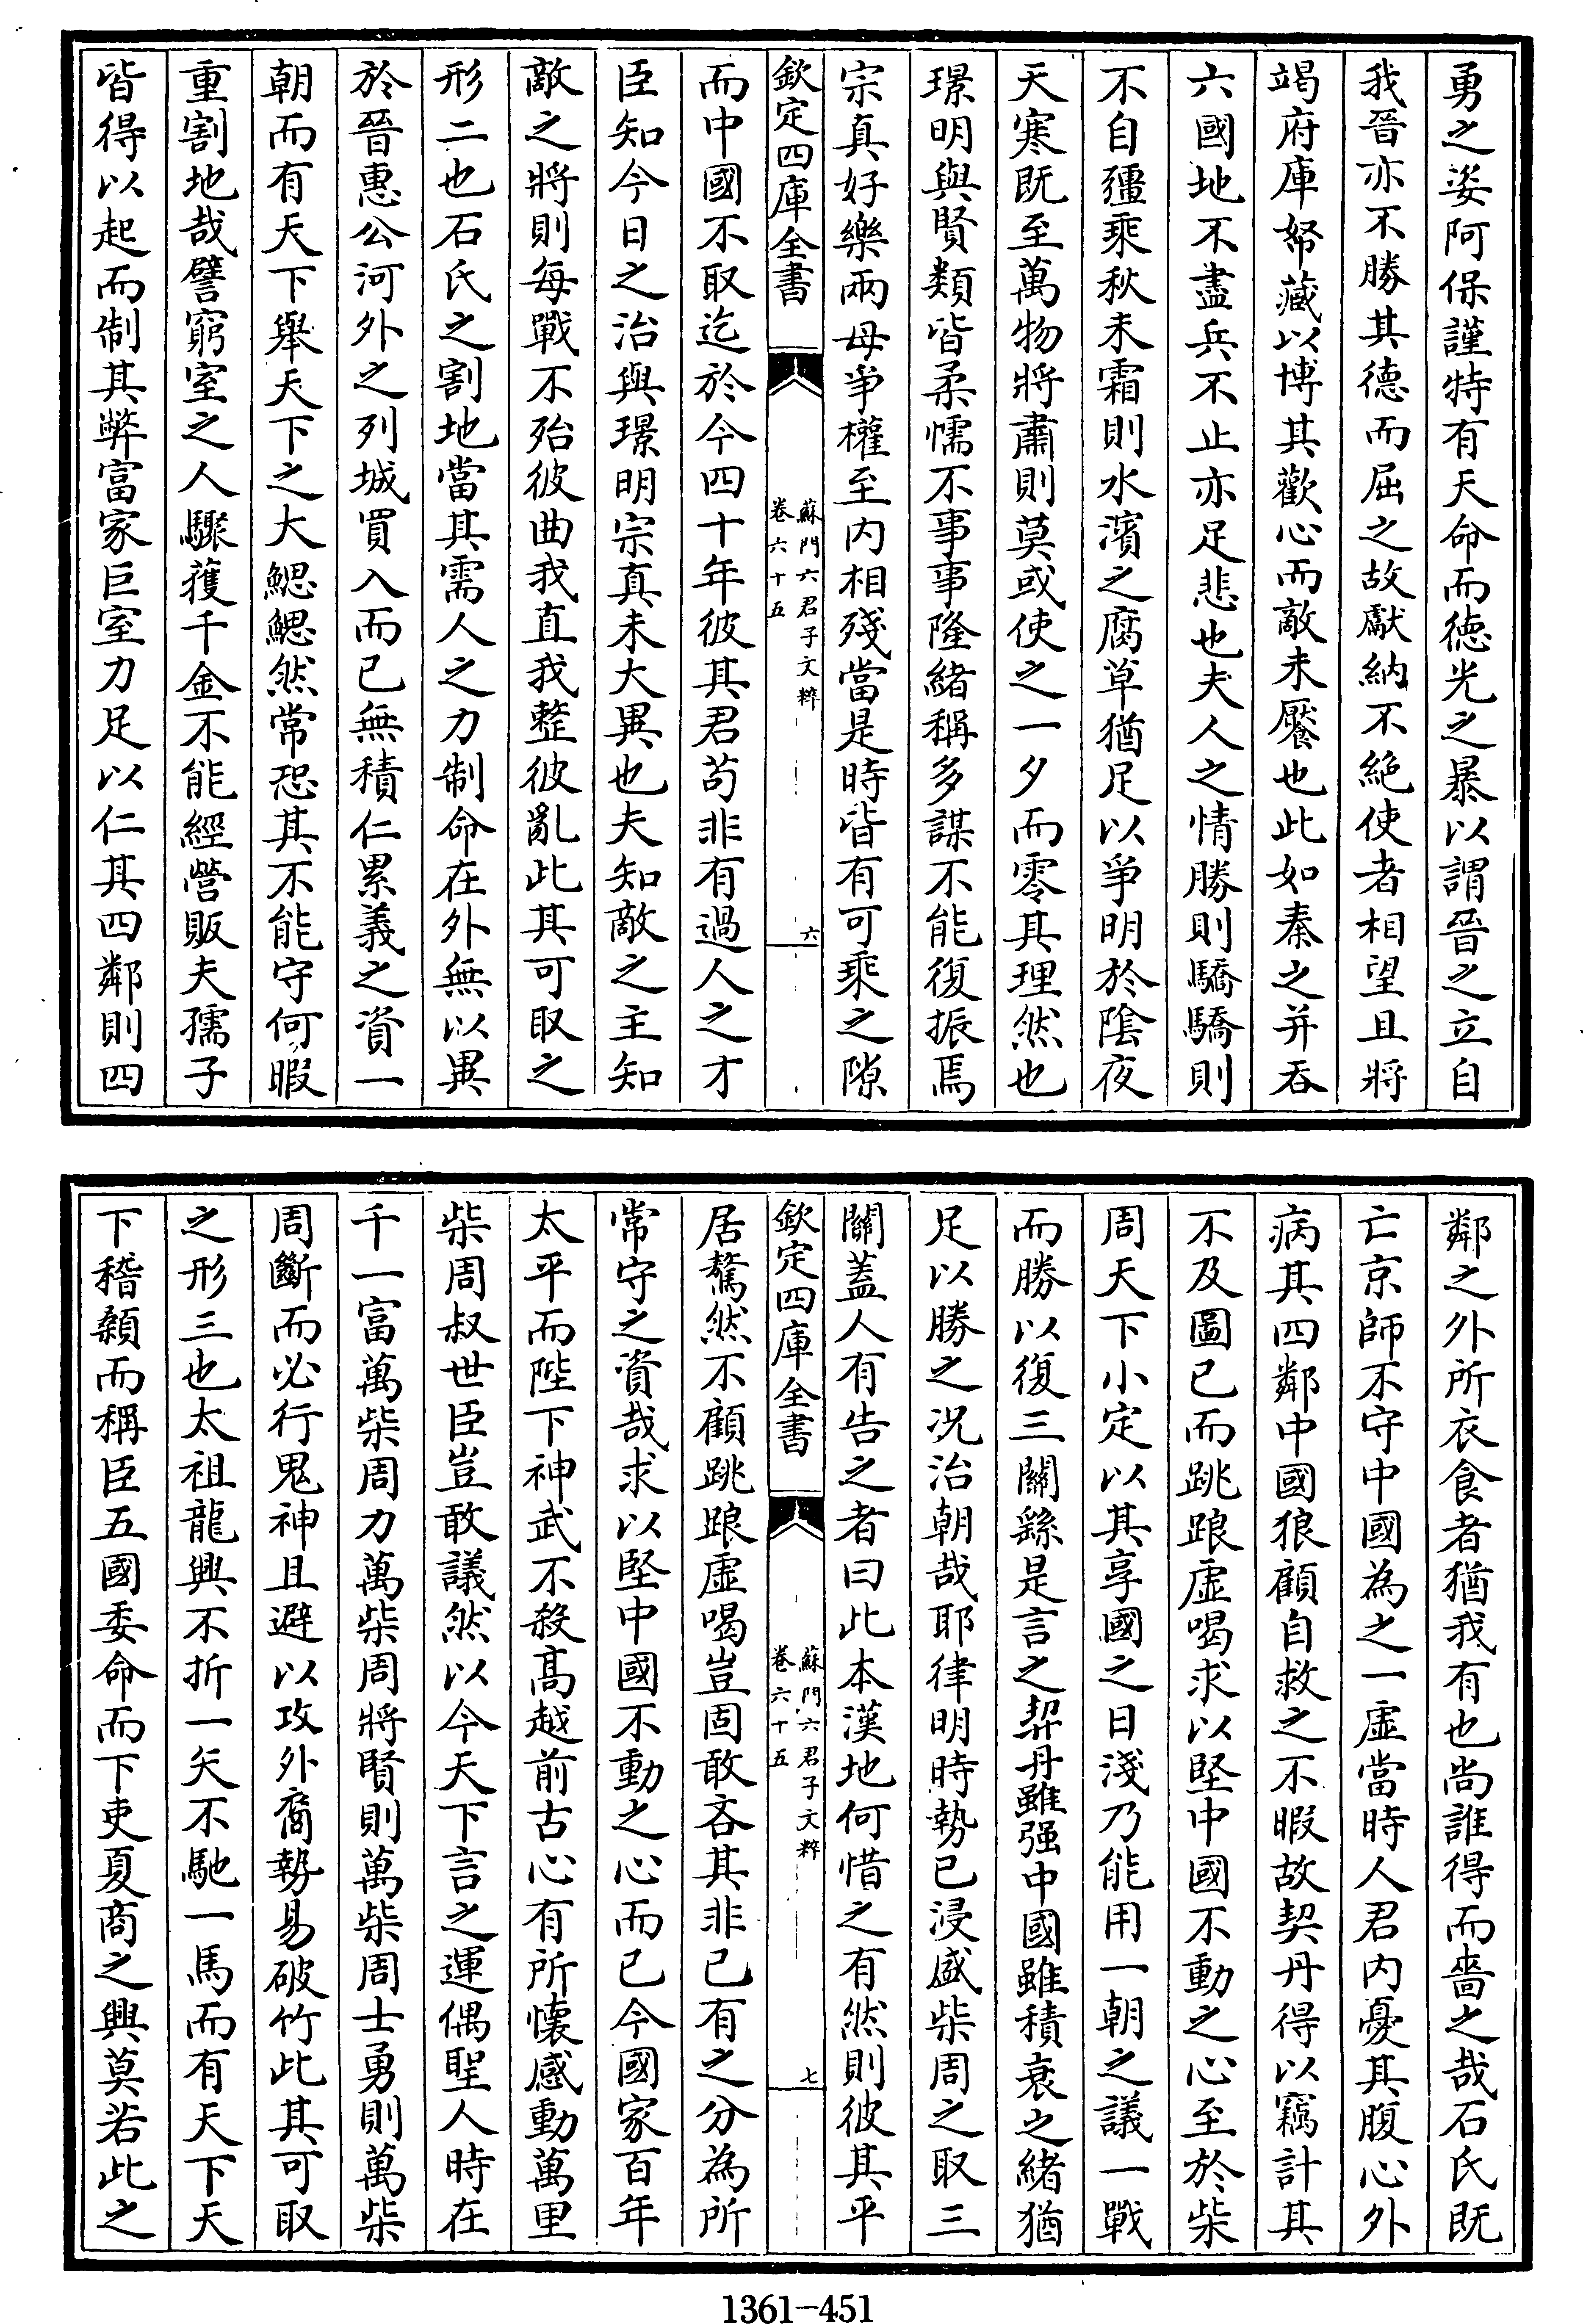 勇之姿阿保謹特有天命而徳光之暴以謂晉之立自
我晉亦不勝其德而屈之故獻納不絶使者相望且將
竭府庫帑藏以博其歡心而敵未饜也此如秦之并吞
六國地不盡兵不止亦足悲也夫人之情勝則驕驕則
不自彊乘秋未霜則水濱之腐草猶足以爭明於隂夜
天寒既至萬物將肅則莫或使之一夕而零其理然也
璟明與賢類皆柔懦不事事隆緒稱多謀不能復振焉
宗真好樂兩母爭權至内相殘當是時皆有可乘之隙
欽定四庫全書
蘇門六君子文粹
卷六十五
六
而中國不取迄於今四十年彼其君苟非有過人之才
臣知今日之治與璟明宗真未大異也夫知敵之主知
敵之將則每戰不殆彼曲我直我整彼亂此其可取之
形二也石氏之割地當其需人之力制命在外無以異
於晉惠公河外之列城買入而已無積仁累義之資一
朝而有天下舉天下之大鰓鰓然常恐其不能守何暇
重割地哉譬窮室之人驟獲千金不能經營販夫孺子
皆得以起而制其弊富家巨室力足以仁其四鄰則四
鄰之外所衣食者猶我有也尚誰得而嗇之哉石氏既
亡京師不守中國為之一虛當時人君内憂其腹心外
病其四鄰中國狼顧自救之不暇故契丹得以竊計其
不及圖已而跳踉虛喝求以堅中國不動之心至於柴
周天下小定以其享國之日淺乃能用一朝之議一戰
而勝以復三關繇是言之契丹雖强中國雖積衰之緒猶
足以勝之况治朝哉耶律明時勢已浸盛柴周之取三
關蓋人有告之者曰此本漢地何惜之有然則彼其平
欽定四庫全書
蘇門六君子文粹
卷六十五
七
居驁然不顧跳踉虛喝豈固敢吝其非已有之分為所
常守之資哉求以堅中國不動之心而已今國家百年
太平而陛下神武不殺髙越前古心有所懷感動萬里
柴周叔世臣豈敢議然以今天下言之運偶聖人時在
千一富萬柴周力萬柴周將賢則萬柴周士勇則萬柴
周斷而必行鬼神且避以攻外裔勢易破竹此其可取
之形三也太祖龍興不折一矢不馳一馬而有天下天
下稽顙而稱臣五國委命而下吏夏商之興莫若此之
1361-451